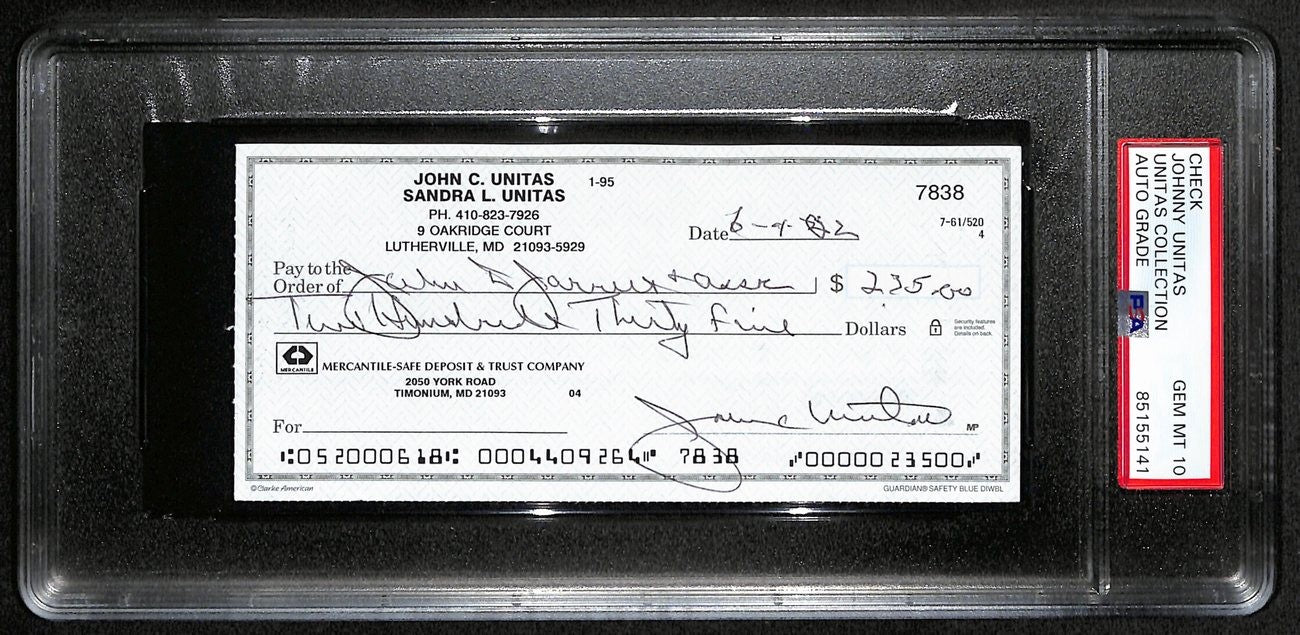 JOHN C. UNITAS 1-95
SANDRA L. UNITAS
7838
PH. 410-823-7926
9 OAKRIDGE COURT
LUTHERVILLE, MD 21093-5929
7-61/520
4
Date 6-4-
Pay to the
Order of John D + Assc $ 235.00
Two Hundred Thirty Five Dollars
Security features
are included.
Details on back.
MERCANTILE
MERCANTILE-SAFE DEPOSIT & TRUST COMPANY
2050 YORK ROAD
TIMONIUM, MD 21093 04
For
John C Unitas
MP
⑆052000618⑆ 0004409264⑈ 7838 ⑇0000023500⑇
©Clarke American
GUARDIAN® SAFETY BLUE DIWBL
CHECK
JOHNNY UNITAS
UNITAS COLLECTION GEM MT 10
AUTO GRADE 85155141
PSA